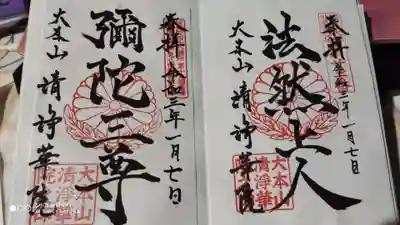 奉拝 令和三年一月七日
法然上人
大本山 清浄華院
大本山
清浄華
院
奉拝 令和三年一月七日
彌陀三尊
大本山 清浄華院
大本山
清浄華
院